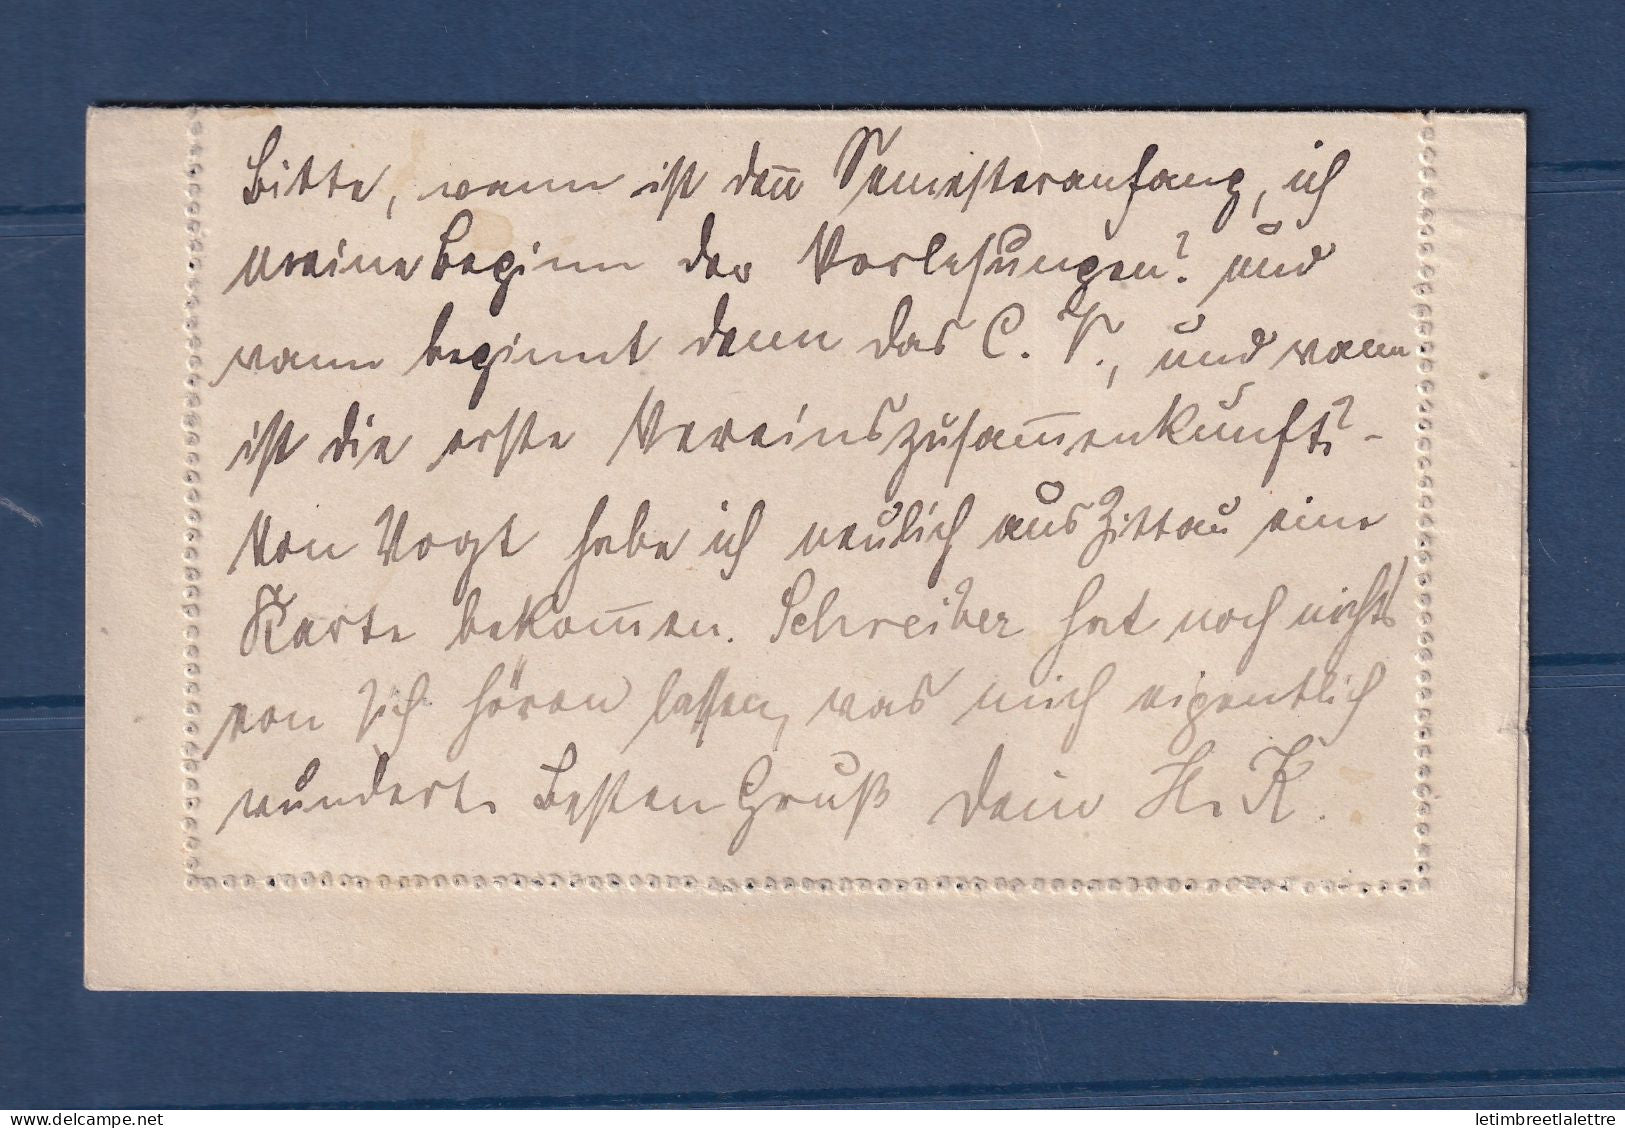 Bitte, wann ist deñ Semesteranfang, ich
meine Beginn der Vorlesungen? und
wann beginnt denn das C. V., und wann
ist die erste Vereinszusam̄enkunft? -
Von Vogt habe ich neulich aus Zittau eine
Karte bekom̄en. Schreiber hat noch nichts
von sich hören lassen, was mich eigentlich
wundert. Besten Gruß Dein H. K.
delcampe.net
letimbreetlalettre